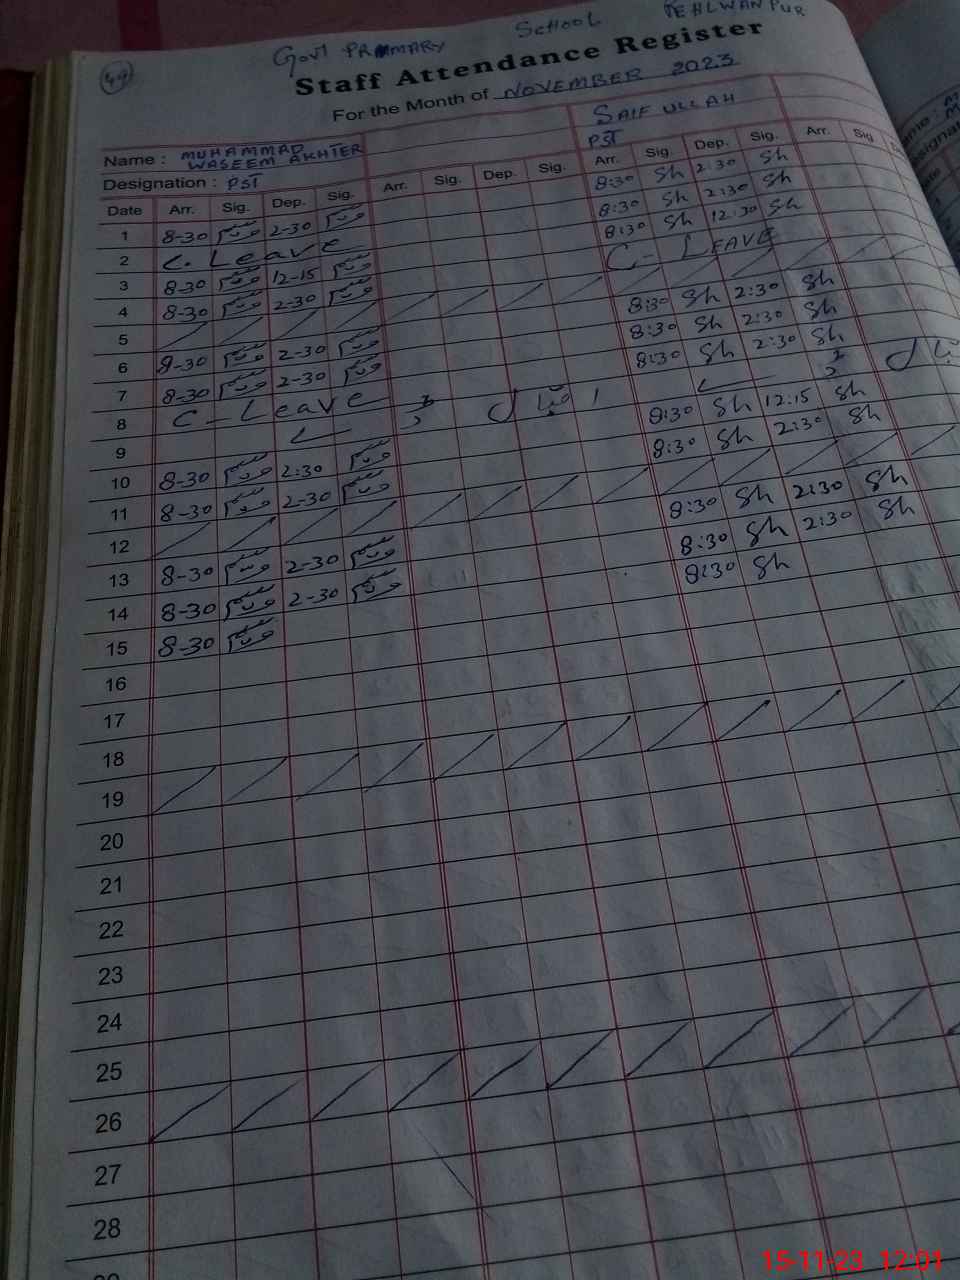 49
Govt PRIMMARY SCHOOL PEHLWANPUR
Staff Attendance Register
For the Month of NOVEMBER 2023
Name : MUHAMMAD WASEEM AKHTER SAIF ULLAH
Designation : PST PST
Date Arr. Sig. Dep. Sig. Arr. Sig. Dep. Sig. Arr. Sig. Dep. Sig. Arr. Sig
1 8-30 وسیم 2-30 وسیم 8:30 Sh 2:30 Sh
2 C. Leave 8:30 Sh 2:30 Sh
3 8-30 وسیم 12-15 وسیم 8:30 Sh 12:30 Sh
4 8-30 وسیم 2-30 وسیم C- LEAVE
5
6 8-30 وسیم 2-30 وسیم 8:30 Sh 2:30 Sh
7 8-30 وسیم 2-30 وسیم 8:30 Sh 2:30 Sh
8 C - Leave 8:30 Sh 2:30 Sh
9 اقبال
10 8-30 وسیم 2:30 وسیم 8:30 Sh 12:15 Sh
11 8-30 وسیم 2-30 وسیم 8:30 Sh 2:30 Sh
12
13 8-30 وسیم 2-30 وسیم 8:30 Sh 2:30 Sh
14 8-30 وسیم 2-30 وسیم 8:30 Sh 2:30 Sh
15 8-30 وسیم 8:30 Sh
16
17
18
19
20
21
22
23
24
25
26
27
28
15-11-23 12:01